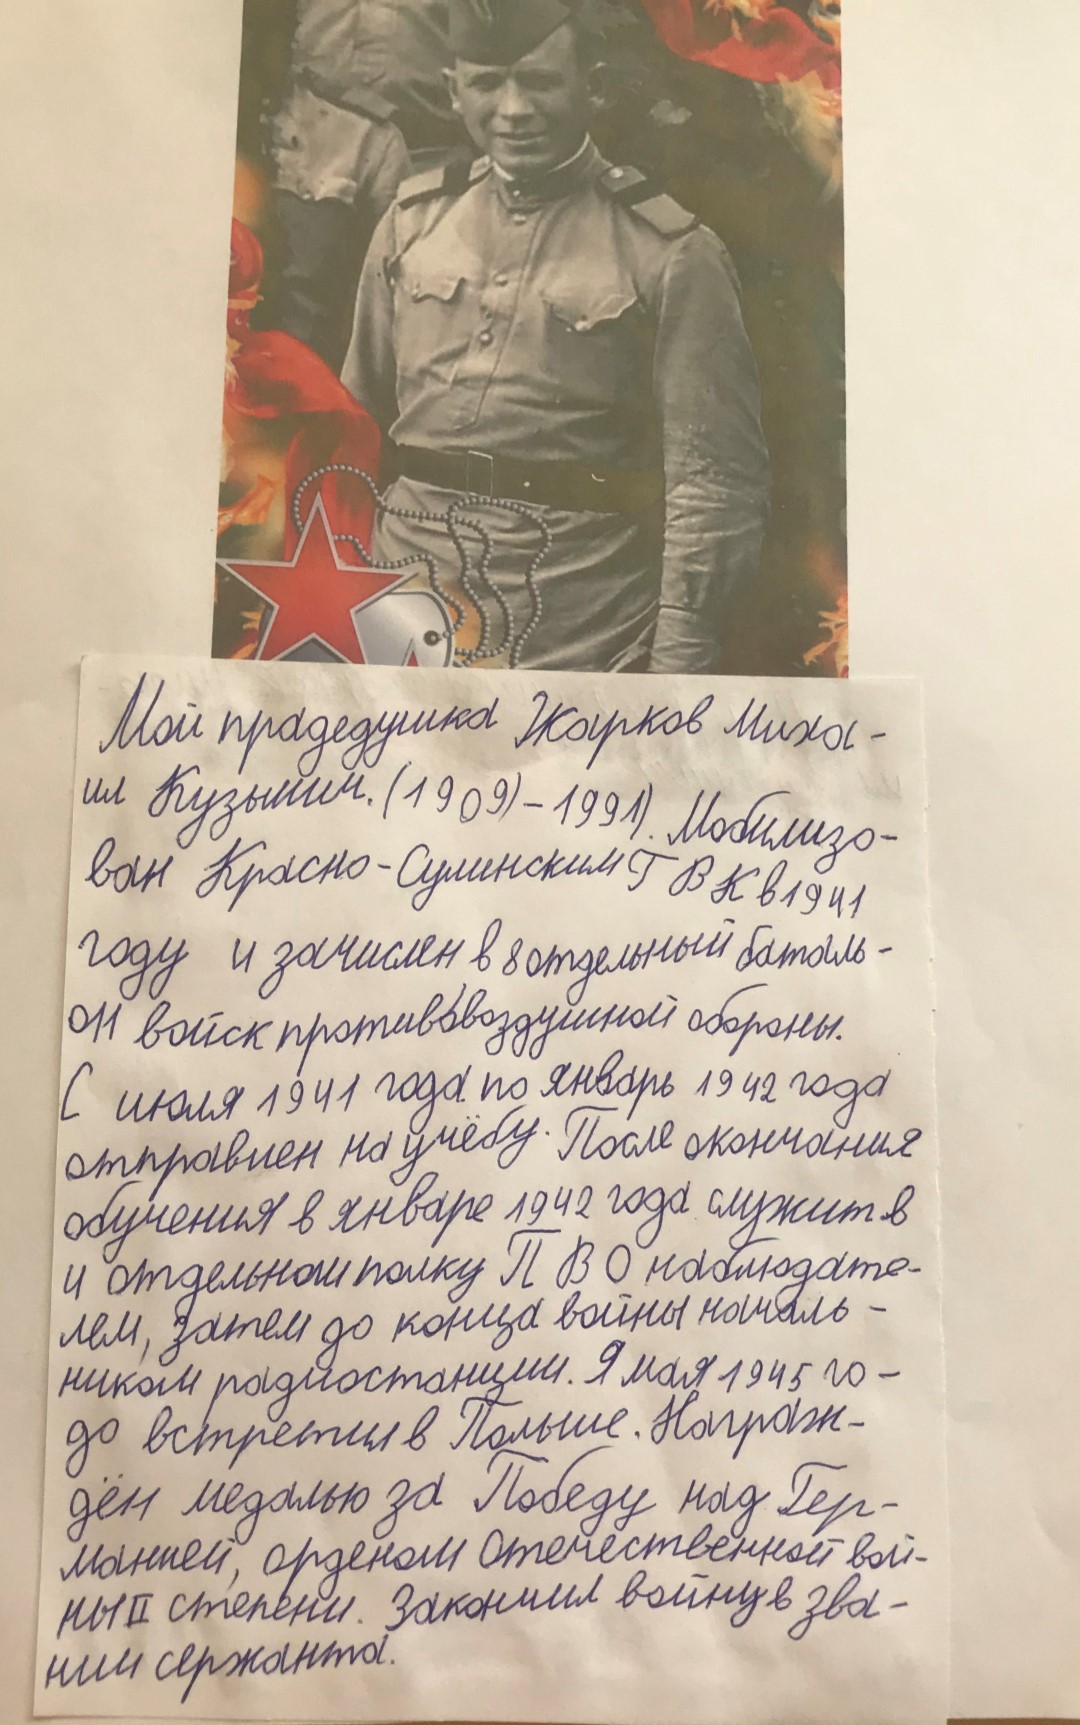 Мой прадедушка Жарков Миха-
ил Кузьмич. (1909)-1991). Мобилизо-
ван Красно-Сулинским Г В К в 1941
году и зачислен в 8 отдельный баталь-
он войск противовоздушной обороны.
С июля 1941 года по январь 1942 года
отправлен на учёбу. После окончания
обучения в январе 1942 года служит в
и отдельном полку П В О наблюдате-
лем, затем до конца войны началь-
ником радиостанции. 9 мая 1945 го-
до встретил в Польше. Награж-
дён медалью за Победу над Гер-
манией, орденом Отечественной вой-
ны II степени. Закончил войну в зва-
нии сержанта.